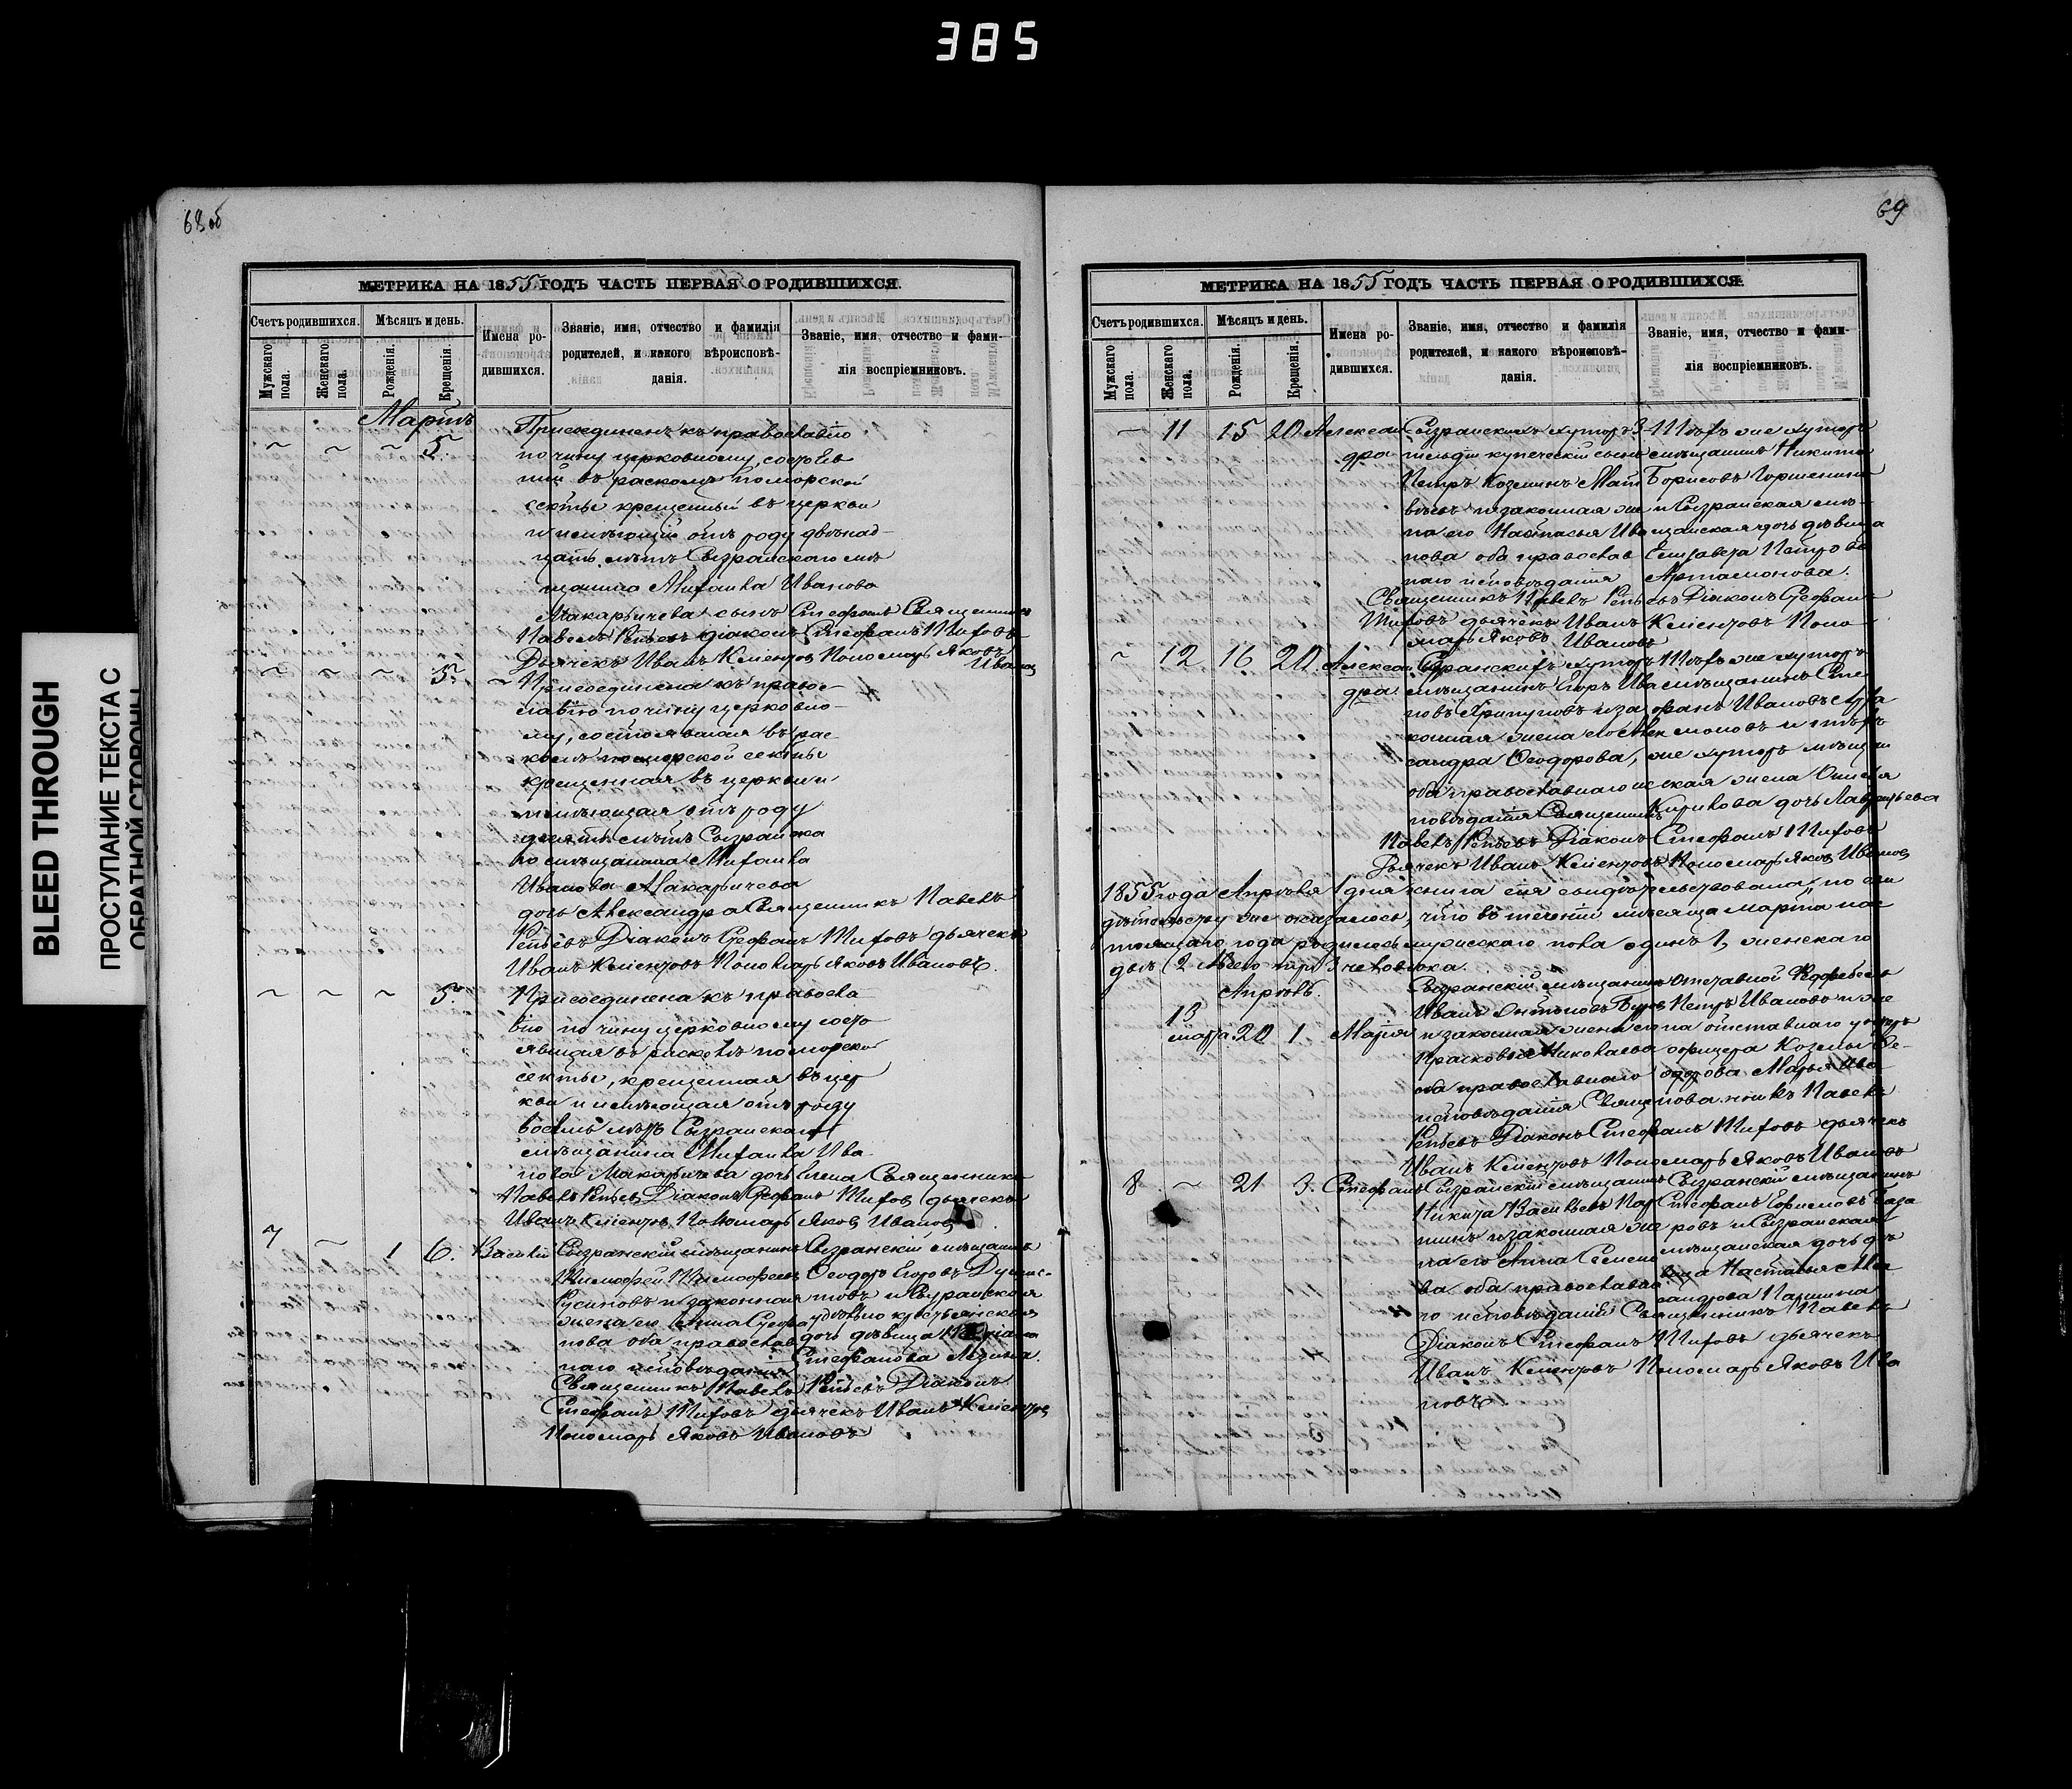 385
68 об
МЕТРИКА НА 1855 ГОДЪ ЧАСТЬ ПЕРВАЯ О РОДИВШИХСЯ.
Счетъ родившихся.
Мѣсяцъ и день.
Имена родившихся.
Званіе, имя, отчество и фамилія
родителей, и какого вѣроисповѣ-
данія.
Званіе, имя, отчество и фами-
лія воспріемниковъ.
Мужскаго пола.
Женскаго пола.
Рожденія.
Крещенія.
Мартъ
5.
Присоединенъ къ православію
по чину церковному, состояв
шій въ расколѣ поморской
секты крещенный въ церкви
и имѣющій отъ роду двѣнад-
цать лѣтъ Сызранскаго мѣ
щанина Михаила Иванова
Макарычева сынъ Стефанъ Священникъ
Павелъ Діаконъ Стефанъ
Дьячекъ Иванъ Климентов Пономарь Яковъ
Иванов
5.
Присоединена къ правос-
лавію по чину церковно-
му, состоявшая въ рас-
колѣ поморской секты
крещенная въ церкви и
имѣющая отъ роду
девять лѣтъ Сызранска
го мѣщанина Михаила
Иванова Макарычева
дочь Александра Священникъ Павелъ
Діаконъ Стефанъ дьячекъ
Иванъ Климентовъ Пономарь Яковъ Ивановъ.
5.
Присоединена къ правосла
вію по чину церковному состо
явшая въ расколѣ поморской
секты, крещенная въ цер
кви и имѣющая отъ роду
восемь лѣтъ Сызранскаго
мѣщанина Михаила Ива
нова Макарычева дочь Елена Священникъ
Павелъ Діаконъ Стефанъ дьячекъ
Иванъ Климентов Пономарь Яковъ Иванов
7 1 6. Василій
Сызранскій мѣщанинъ
Тимофей Тимофеевъ
Русиновъ и законная
жена его Анна
нова оба православ
наго исповѣданія
Сызранскій мѣщанинъ
Ѳеодоръ Егоровъ
и Сызранская
удѣльно крестьянская
дочь дѣвица
Стефанова
Священникъ Павелъ Діаконъ
Стефанъ дьячекъ Иванъ Климентов
Пономарь Яковъ Ивановъ
69
МЕТРИКА НА 1855 ГОДЪ ЧАСТЬ ПЕРВАЯ О РОДИВШИХСЯ.
Счетъ родившихся.
Мѣсяцъ и день.
Имена родившихся.
Званіе, имя, отчество и фамилія
родителей, и какого вѣроисповѣ-
данія.
Званіе, имя, отчество и фами-
лія воспріемниковъ.
Мужскаго пола.
Женскаго пола.
Рожденія.
Крещенія.
11 15 20 Алексан
дра
Сызранскихъ хуторъ 3
гильдіи купеческій сынъ
Петръ Козминъ Мат
вѣевъ и законная же
на его Настасья Ива
нова оба православ
наго исповѣданія
Тѣхъ же хуторъ
мѣщанинъ Никита
Борисовъ Горшенинъ
и Сызранская мѣ
щанская дочь дѣвица
Елизавета Петрова
Артамонова.
Священникъ Павелъ Діаконъ Стефанъ
дьячекъ Иванъ Климентовъ Поно
марь Яковъ Ивановъ
12 16 20. Алексан
дра
Сызранскихъ хуторъ
мѣщанинъ Егоръ Ива
новъ и за
конная жена его Алек
сандра Ѳеодорова,
оба православнаго ис
повѣданія
Тѣхъ же хуторъ
мѣщанинъ Сте
фанъ Ивановъ
и тѣхъ
же хуторъ мѣщан
ская жена
дочь Лаврентьева
Священникъ
Павелъ Діаконъ Стефанъ
Дьячекъ Иванъ Климентовъ Пономарь Яков Иванов
1855 года Апрѣля 1 дня книга сія свидѣтельствована, по сви
дѣтельству же оказалось, что въ теченіи мѣсяца Марта нас
тоящаго года родилось мужескаго пола одинъ 1, женскаго
двѣ (2 Всего три 3 человѣка.
Апрѣль.
13
марта 20 1 Марія
Сызранскій мѣщанинъ
Иванъ
и законная жена его
Прасковья Николаева
оба православнаго
исповѣданія
Отставной
Петръ Ивановъ и же
на отставнаго унтеръ
офицера Козмы Ѳе-
одорова Марья Ива
нова.
Священникъ Павелъ
Діаконъ Стефанъ дьячекъ
Иванъ Климентовъ Пономарь Яковъ Ивановъ
8 21 3. Стефанъ
Сызранскій мѣщанинъ
Никита Васильевъ Пар
шинъ и законная же
на его Анна Семено
ва оба православна
го исповѣданія
Сызранскій мѣщанинъ
Стефанъ Ефимовъ База
ровъ и Сызранская
мѣщанская дочь дѣ
вица Настасья Алек
сандрова Паршина
Священникъ Павелъ
Діаконъ Стефанъ дьячекъ
Иванъ Климентовъ Пономарь Яковъ Ива
новъ
BLEED THROUGH
ПРОСТУПАНИЕ ТЕКСТА С
ОБРАТНОЙ СТОРОНЫ